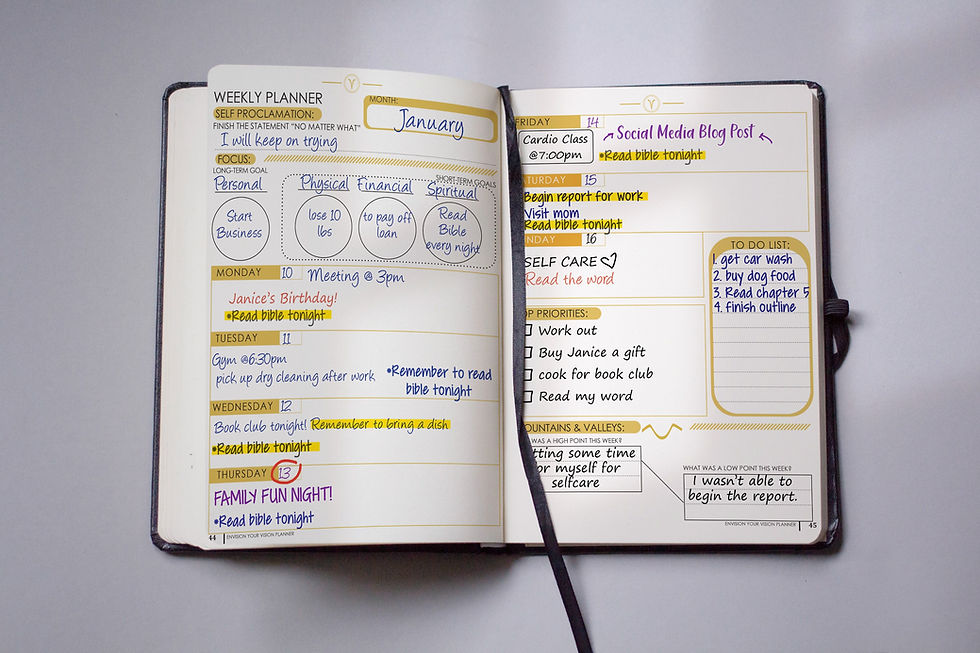 WEEKLY PLANNER
SELF PROCLAMATION:
FINISH THE STATEMENT "NO MATTER WHAT"
I will keep on trying
MONTH:
January
FOCUS:
LONG-TERM GOAL
SHORT-TERM GOALS
Personal
Physical Financial Spiritual
Start
Business
lose 10
lbs
to pay off
loan
Read
Bible
every night
MONDAY 10 Meeting @ 3pm
Janice's Birthday!
•Read bible tonight
TUESDAY 11
Gym @6:30pm
pick up dry cleaning after work
•Remember to read
bible tonight
WEDNESDAY 12
Book club tonight! Remember to bring a dish
•Read bible tonight
THURSDAY 13
FAMILY FUN NIGHT!
•Read bible tonight
44 ENVISION YOUR VISION PLANNER
Y
FRIDAY 14
Cardio Class
@7:00pm
Social Media Blog Post
•Read bible tonight
ATURDAY 15
Begin report for work
Visit mom
Read bible tonight
NDAY 16
SELF CARE
Read the word
TO DO LIST:
1. get car wash
2. buy dog food
3. Read chapter 5
4. finish outline
OP PRIORITIES:
Work out
Buy Janice a gift
cook for book club
Read my word
OUNTAINS & VALLEYS:
WAS A HIGH POINT THIS WEEK?
tting some time
or myself for
selfcare
WHAT WAS A LOW POINT THIS WEEK?
I wasn't able to
begin the report.
ENVISION YOUR VISION PLANNER 45